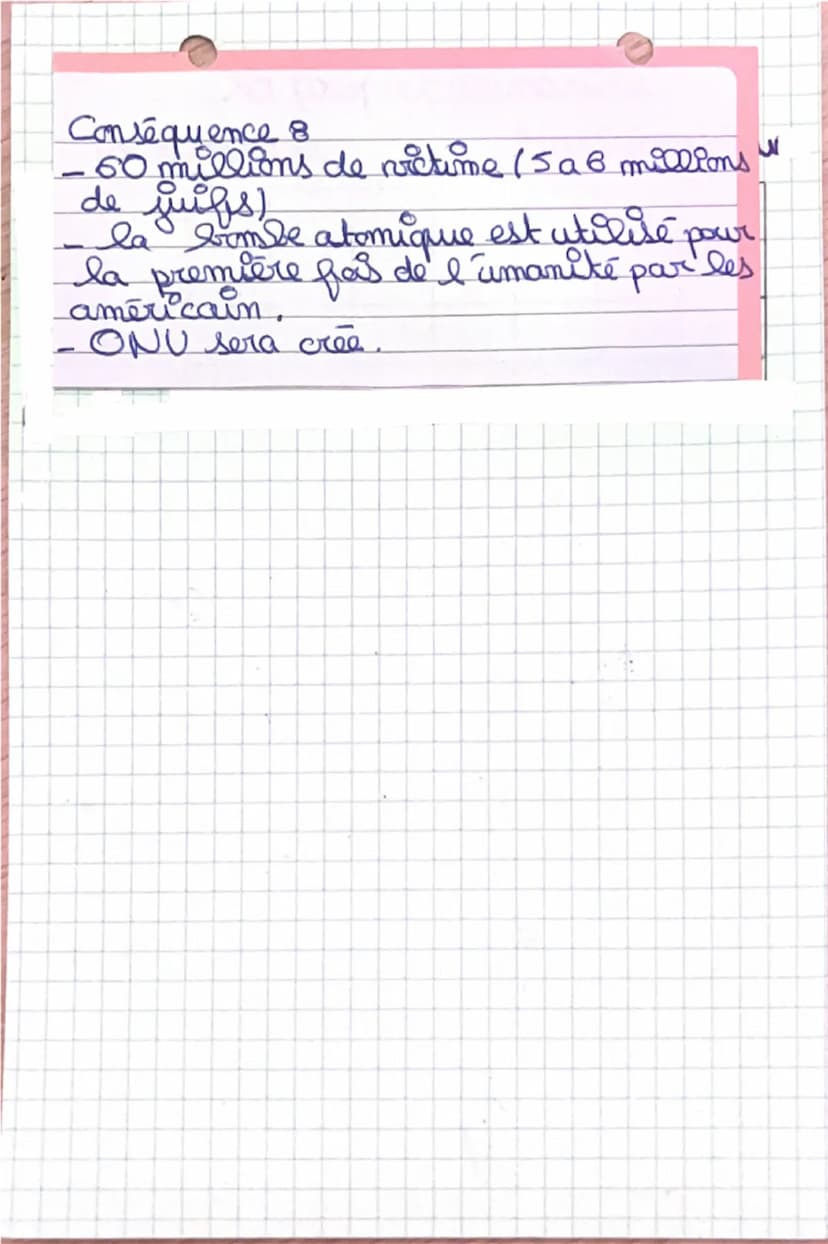 Conséquence :
- 60 millions de victime (5 a 6 millions
de juifs)
- la bombe atomique est utilisé pour
la première fois de l'umanité par les
américain.
- ONU sera créé.